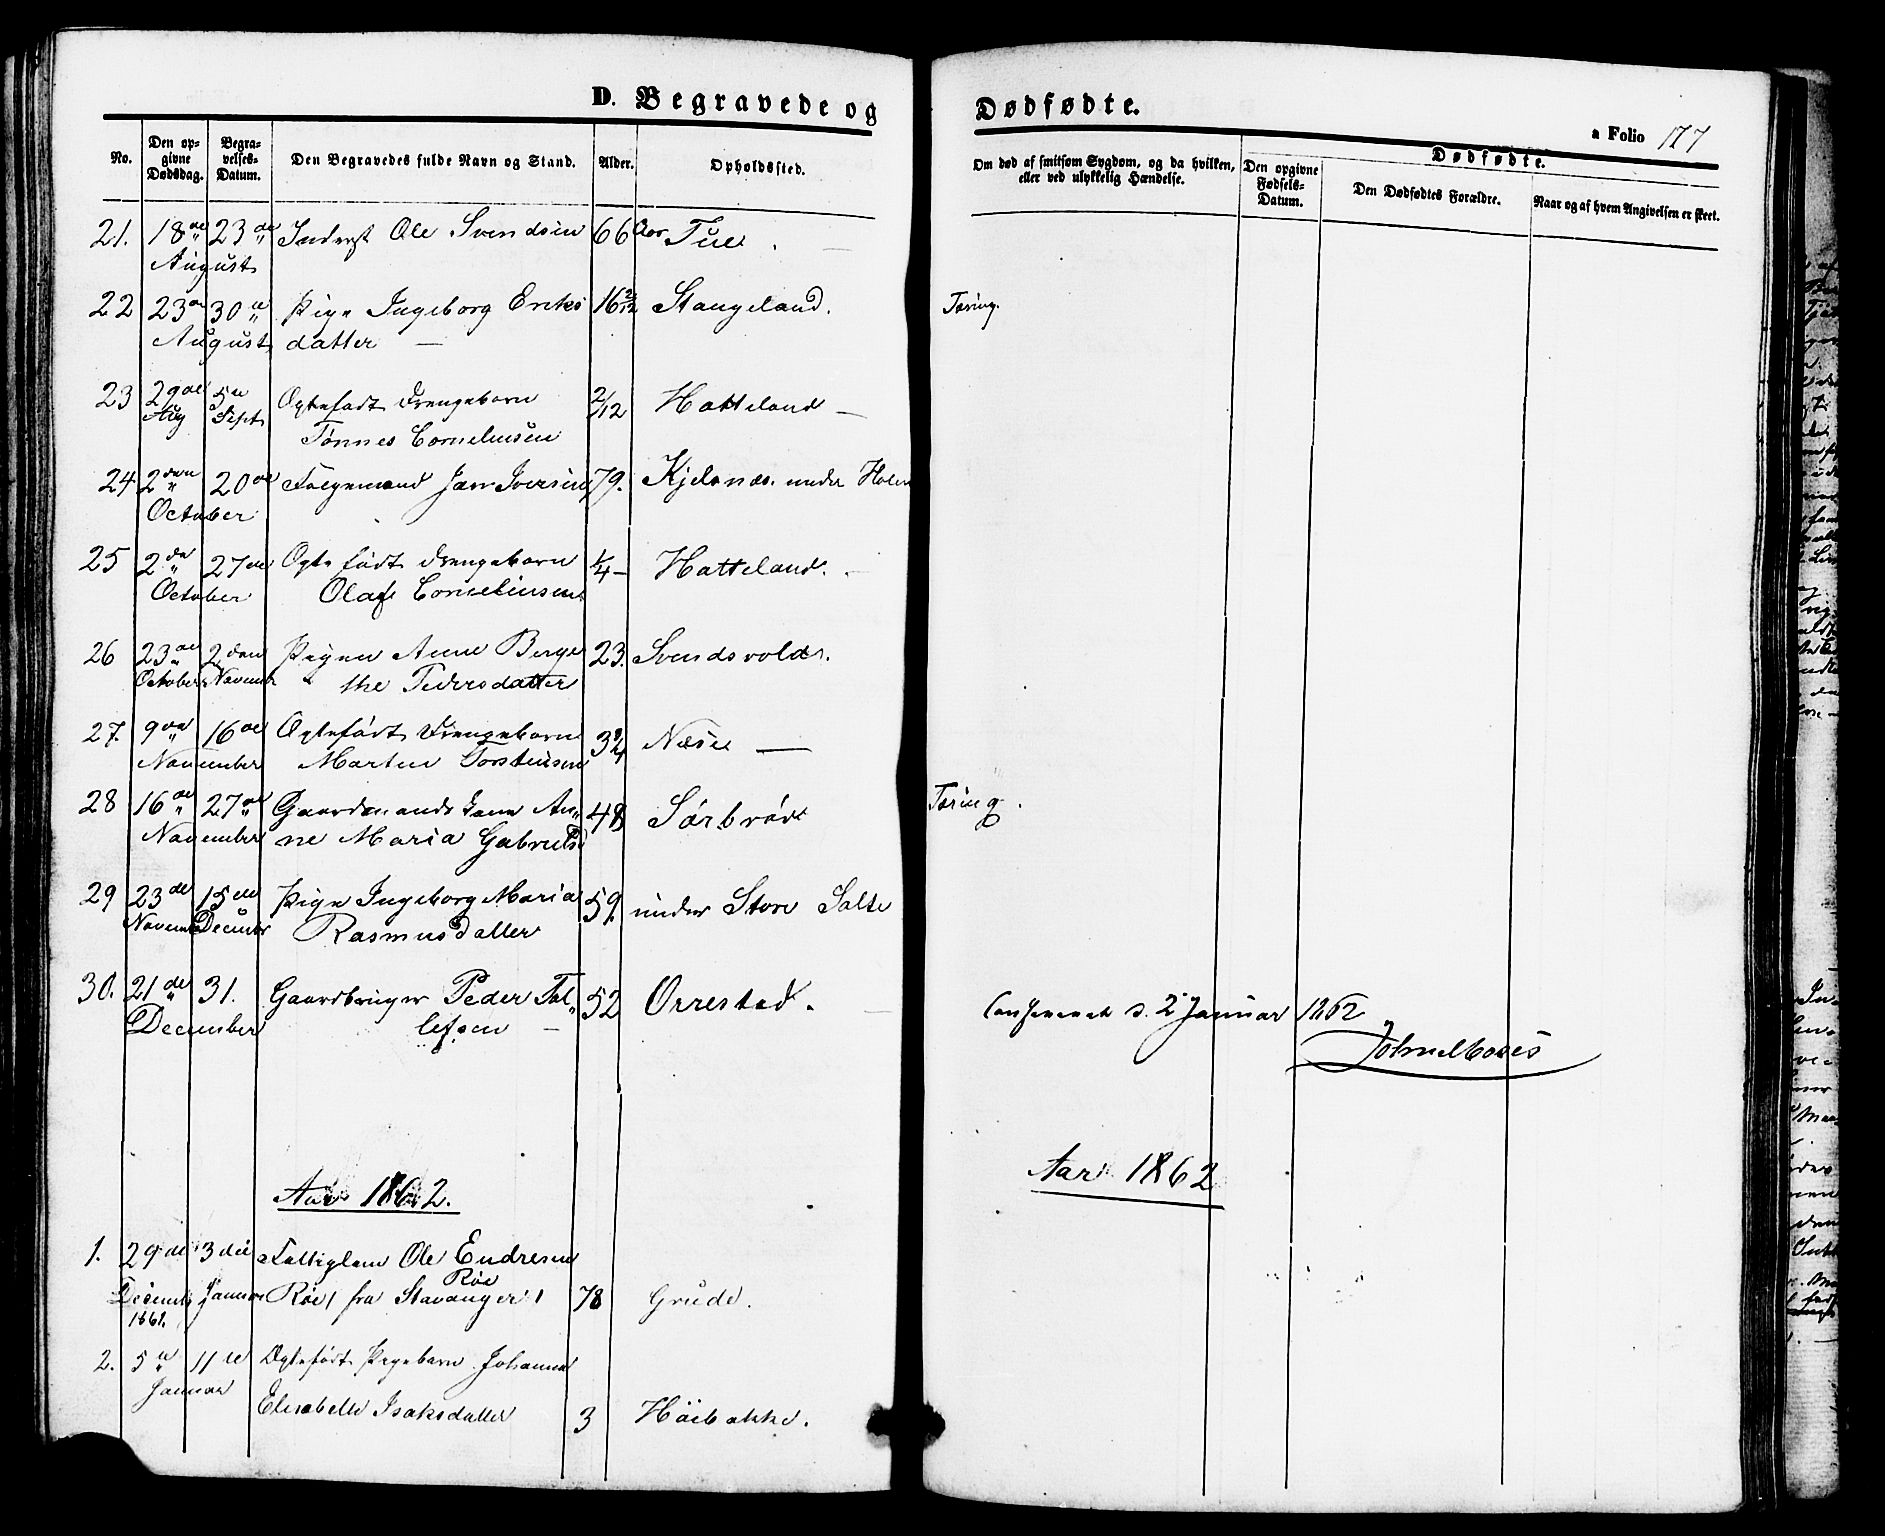 D. Begravede og Dødfødte.
a Folio 177
No.
Den opgivne Dødsdag.
Begravelses-Datum.
Den Begravedes fulde Navn og Stand.
Alder.
Opholdssted.
Om død af smitsom Sygdom, og da hvilken,
eller ved ulykkelig Hændelse.
Dødfødte.
Den opgivne Fødsels-Datum.
Den Dødfødtes Forældre.
Naar og af hvem Angivelsen er skeet.
21. 18de 23de Inderst Ole Svendsen 66 Aar Tue.
August
22 23de 30te Pige Ingeborg Eriks 16 2/12 Stangeland. Tæring.
August datter
23 29de 5te Ægtefødt Drengebarn 2/12 Hatteland
Aug Sept Tønnes Corneliusen
24 2den 20de Folgemand Jan Iversen 79. under
October
25 2de 27de Ægtefødt Drengebarn 1/4 Hatteland.
October Olaf Corneliusen
26 23de 2den Pigen Anne Berge 23. Svendsvold.
October Novembr the Pedersdatter
27. 9de 16de Ægtefødt Drengebarn 3 3/4 Næse
November Martin Torstensen
28 16de 27de Gaardmands Kone An 48 Sørbrød Tæring.
November ne Maria Gabriels
29 23de 15de Pige Ingeborg Maria 59. under Store Salte
Novemb Decembr Rasmusdatter
30. 21de 31. Gaardbruger Peder Tol 52 Orrestad. Confereret d. 2 Januar 1862
December lefsen
Aar 1862. Aar 1862
1. 29de 3die Fattiglem Ole Endresen
Røe
Decemb Januar Røe/ fra Stavanger/ 78 Grude.
1861.
2. 5te 11te Ægtefødt Pigebarn Johanna
Januar
Elisabeth Isaksdatter 3 Høibakke.